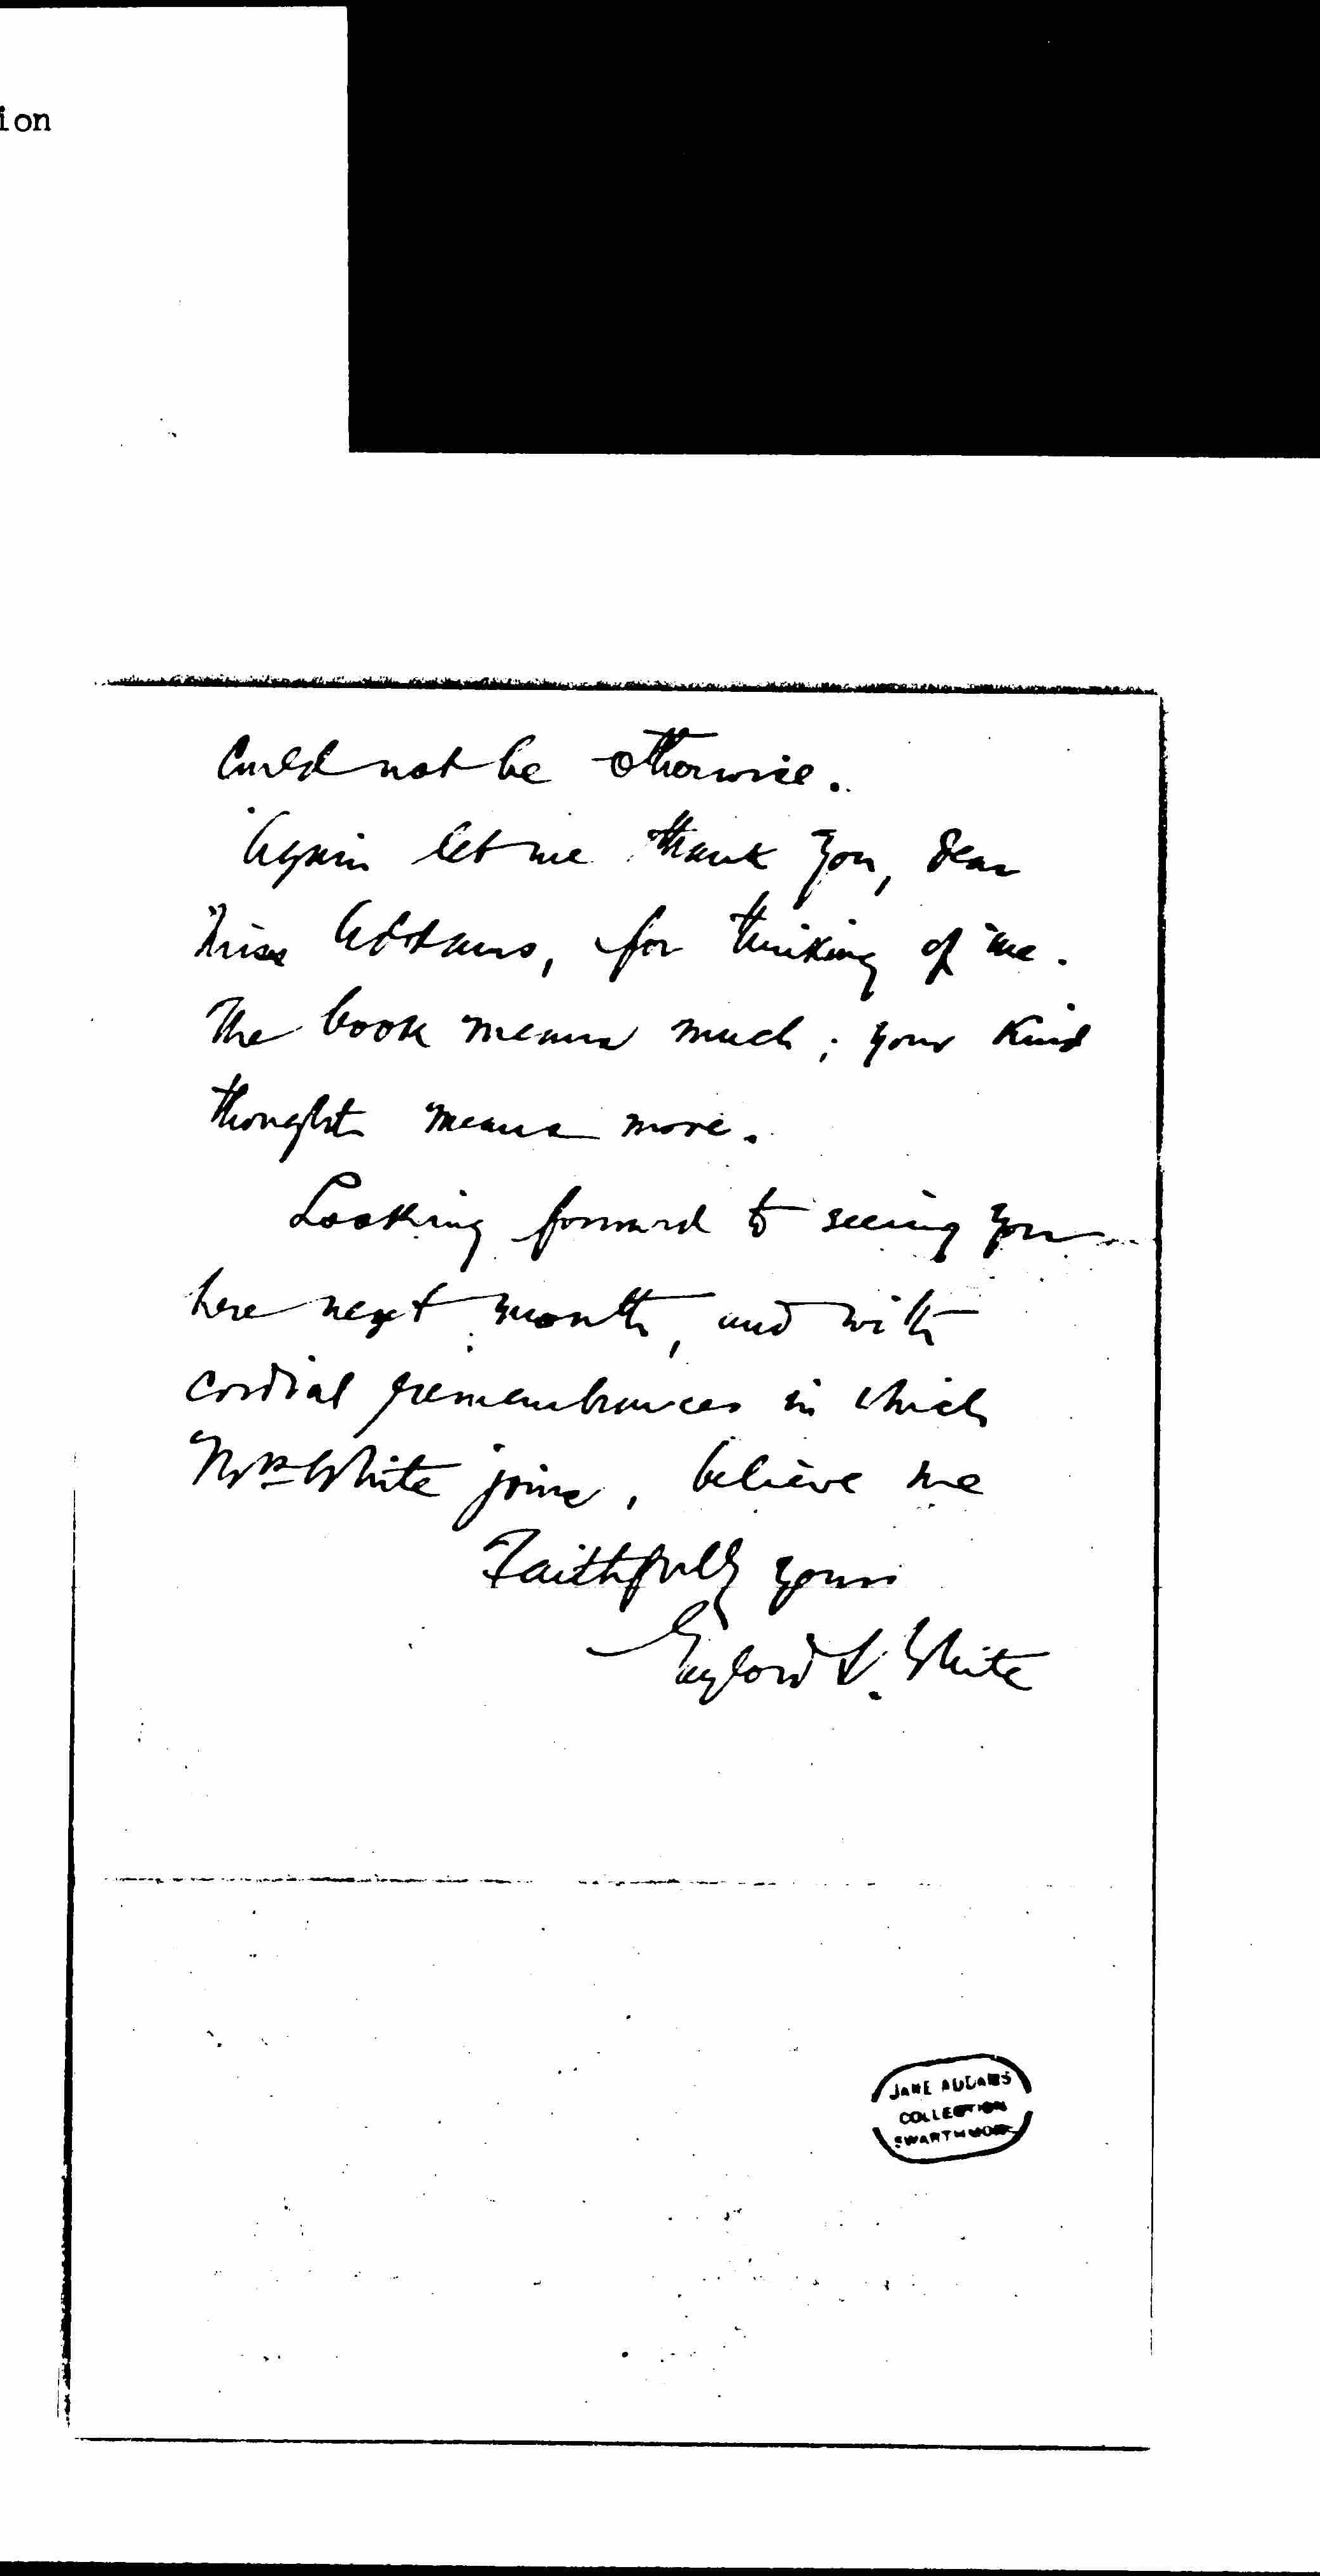 ion
could not be otherwise.
Again let me thank you, dear
Miss Addams, for thinking of me.
The book means much; your kind
thought means more.
Looking forward to seeing you
here next month, and with
cordial remembrances in which
Mrs White joins, believe me
Faithfully yours
Gaylord S. White
JANE ADDAMS
COLLECTION
SWARTHMORE